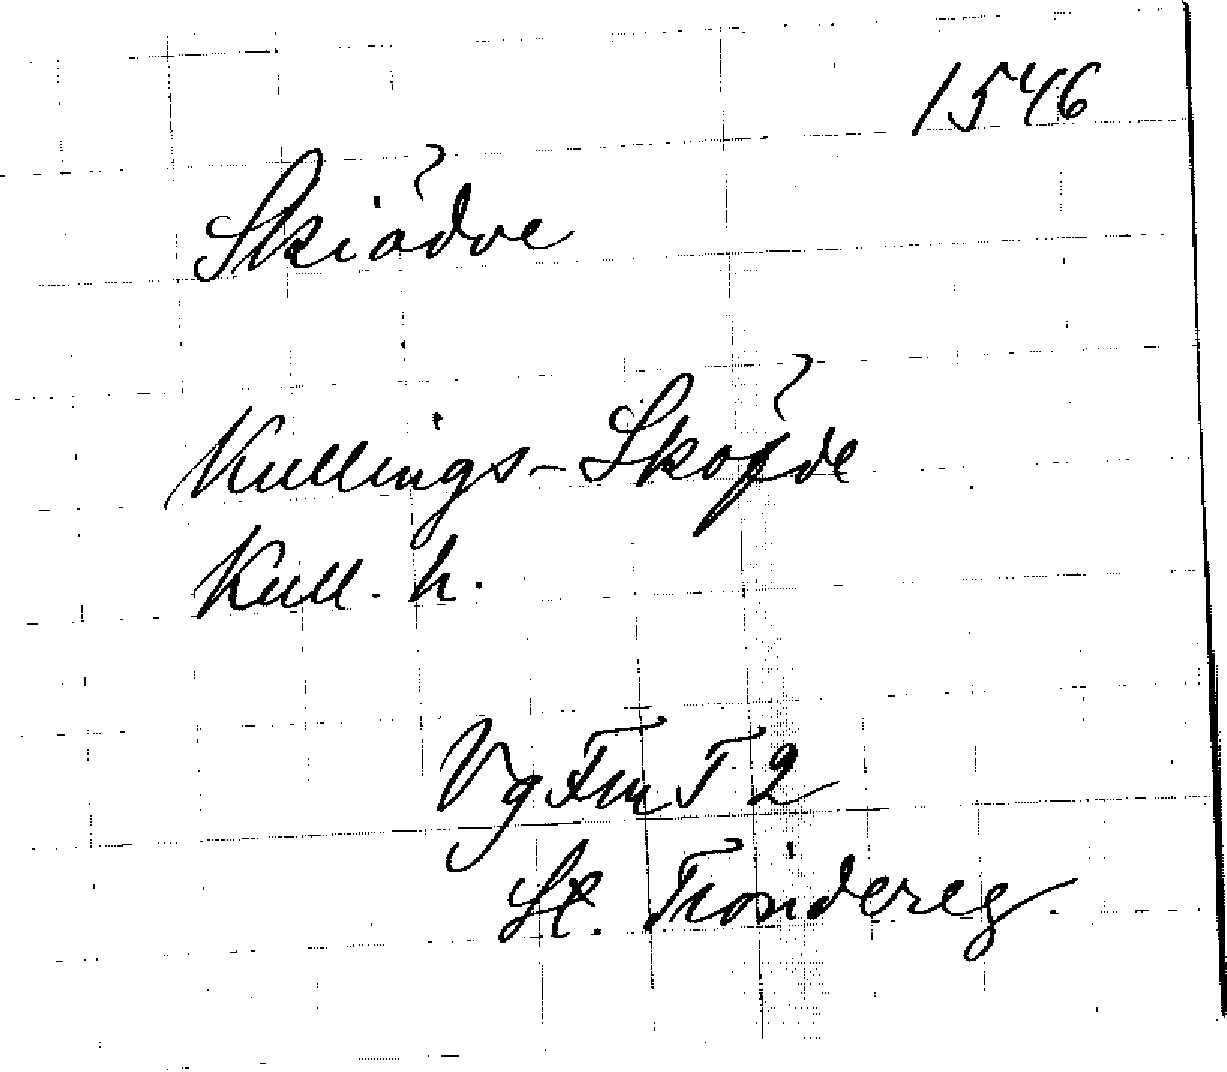 1546
Skiødve
Kullings-Skøvde
Kull. h.
Vg Fm T 2
St. Tiondereg.